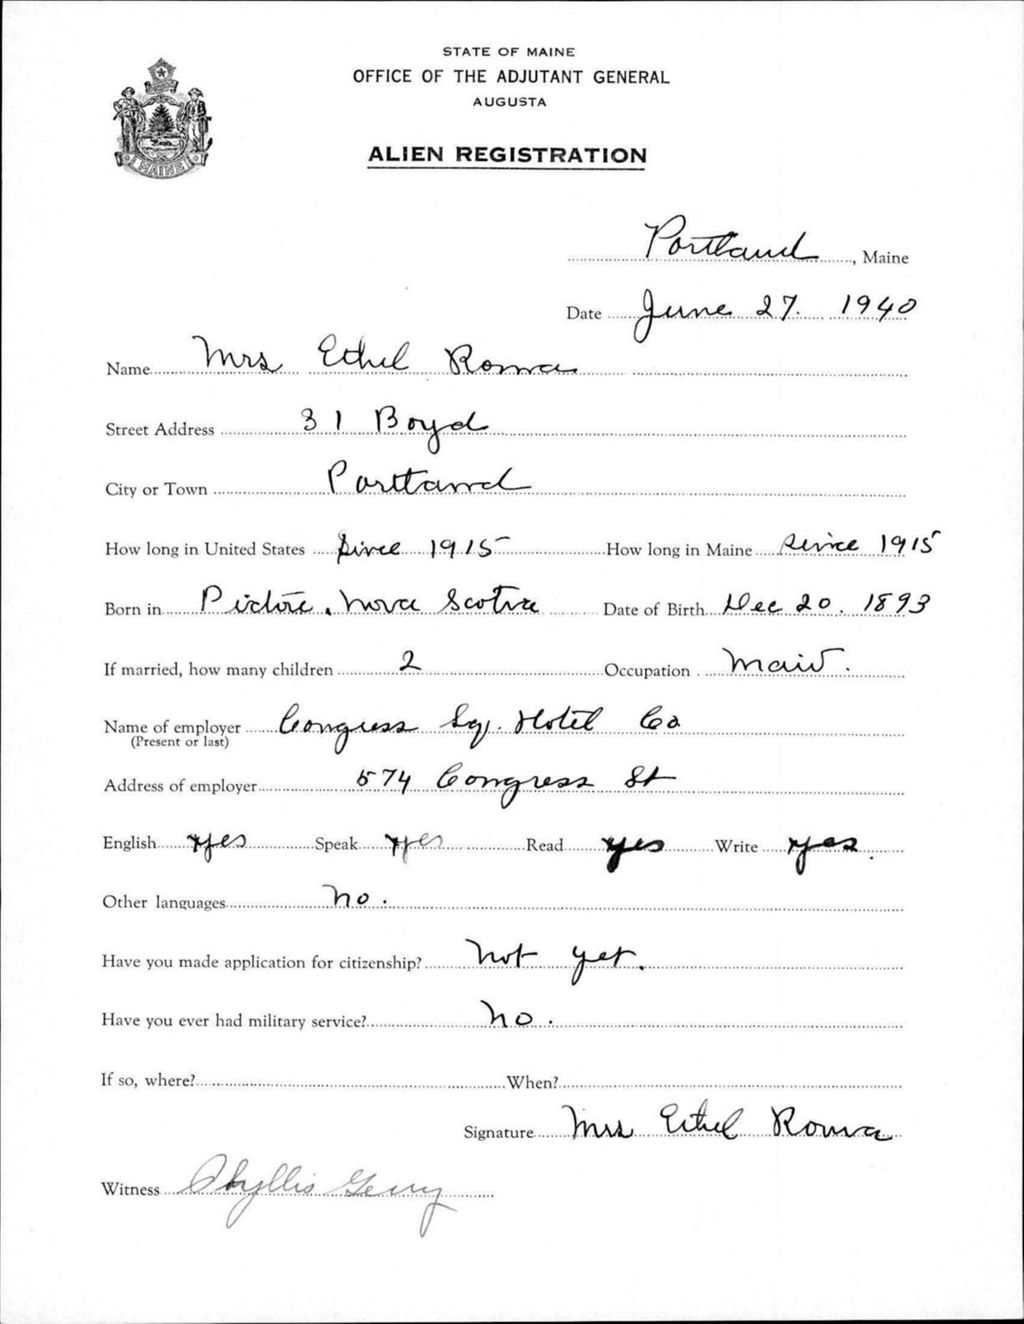 STATE OF MAINE
OFFICE OF THE ADJUTANT GENERAL
AUGUSTA
ALIEN REGISTRATION
MAINE
Portland, Maine
Date June 27. 1940
Name Mrs Ethel Roma
Street Address 31 Boyd
City or Town Portland
How long in United States Since 1915 How long in Maine Since 1915
Born in Pictou, Nova Scotia Date of Birth Dec 20. 1893
If married, how many children 2 Occupation Maid.
Name of employer Congress Sq. Hotel Co
(Present or last)
Address of employer 574 Congress St
English yes Speak yes Read yes Write yes.
Other languages no.
Have you made application for citizenship? not yet.
Have you ever had military service? no.
If so, where? When?
Signature Mrs Ethel Roma
Witness Phyllis Gerry